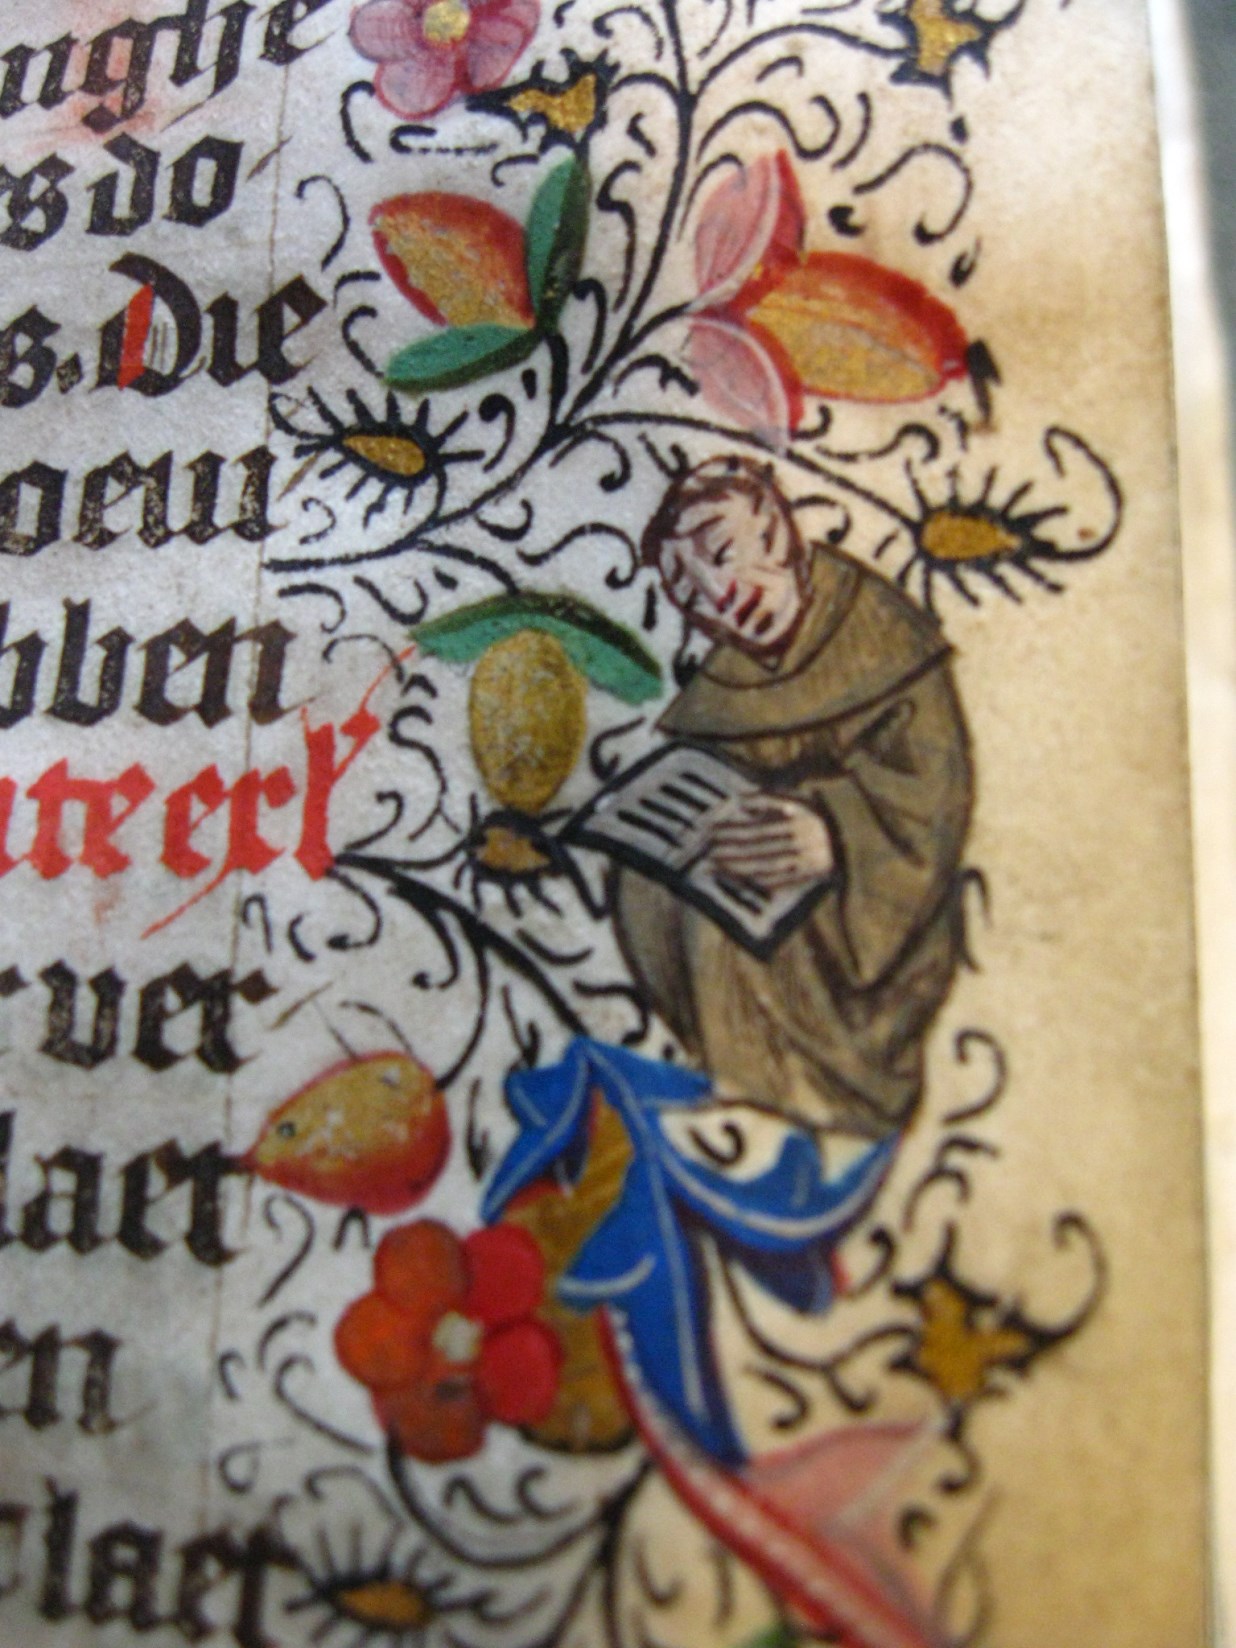 nghe
s do
s. Die
oeui
bben
ate erl
ver
laet
en
laet